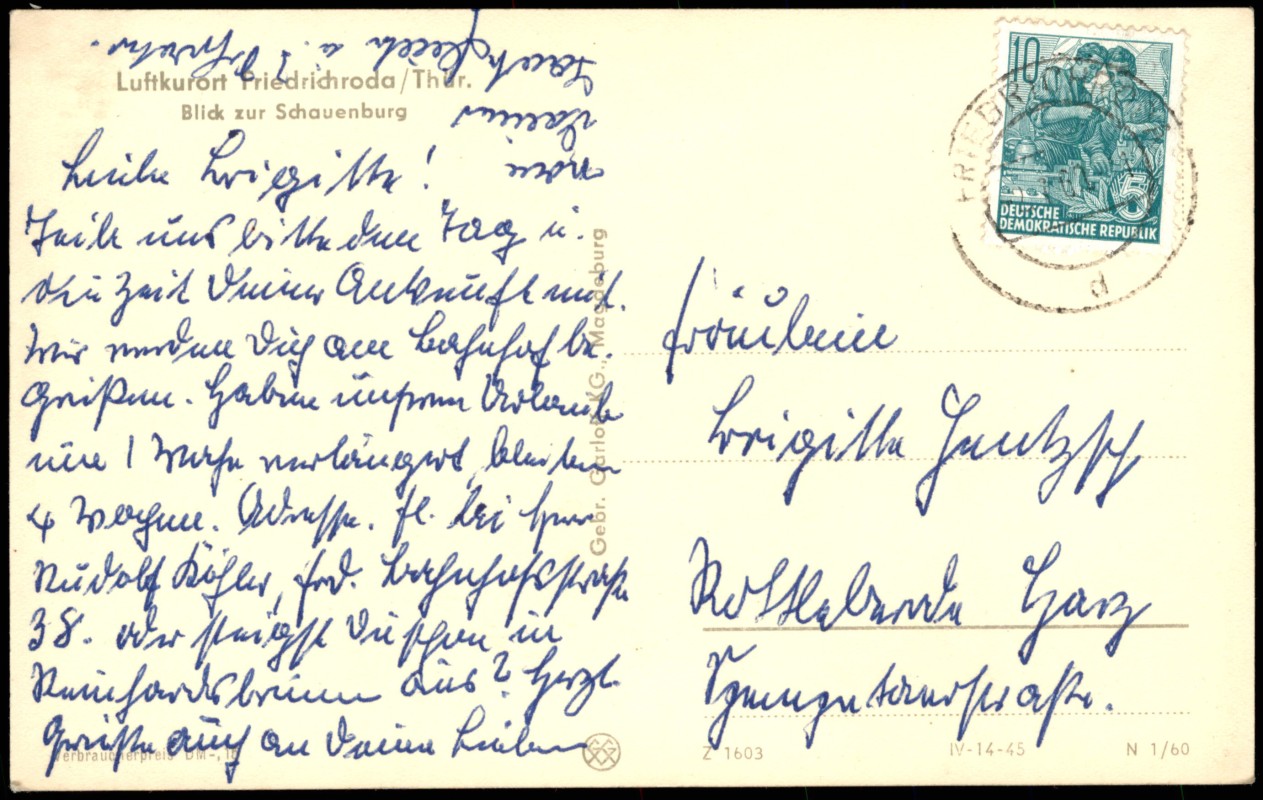 Luftkurort Friedrichroda/Thür.
Blick zur Schauenburg
Liebe Brigitte!
Teile uns bitte den Tag u.
die Zeit Deiner Ankunft mit.
Wir werden Dich am Bahnhof be-
grüßen. Haben unseren Urlaub
um 1 Woche verlängert, bleiben
4 Wochen. Adresse. Fl. bei Herrn
Rudolf Köhler, Frd. Bahnhofsstraße
38. oder steigst Du schon in
Reinhardsbrunn aus? Herzl.
Grüße auch an Deine Lieben
von
Deiner
Tante
Verbraucherpreis DM -,16
Gebr. Garloff KG., Magdeburg
10
5
DEUTSCHE
DEMOKRATISCHE REPUBLIK
FRIEDRICHRODA
d
Fräulein
Brigitte Jentzsch
Rottleberode Harz
Z 1603
IV-14-45
N 1/60